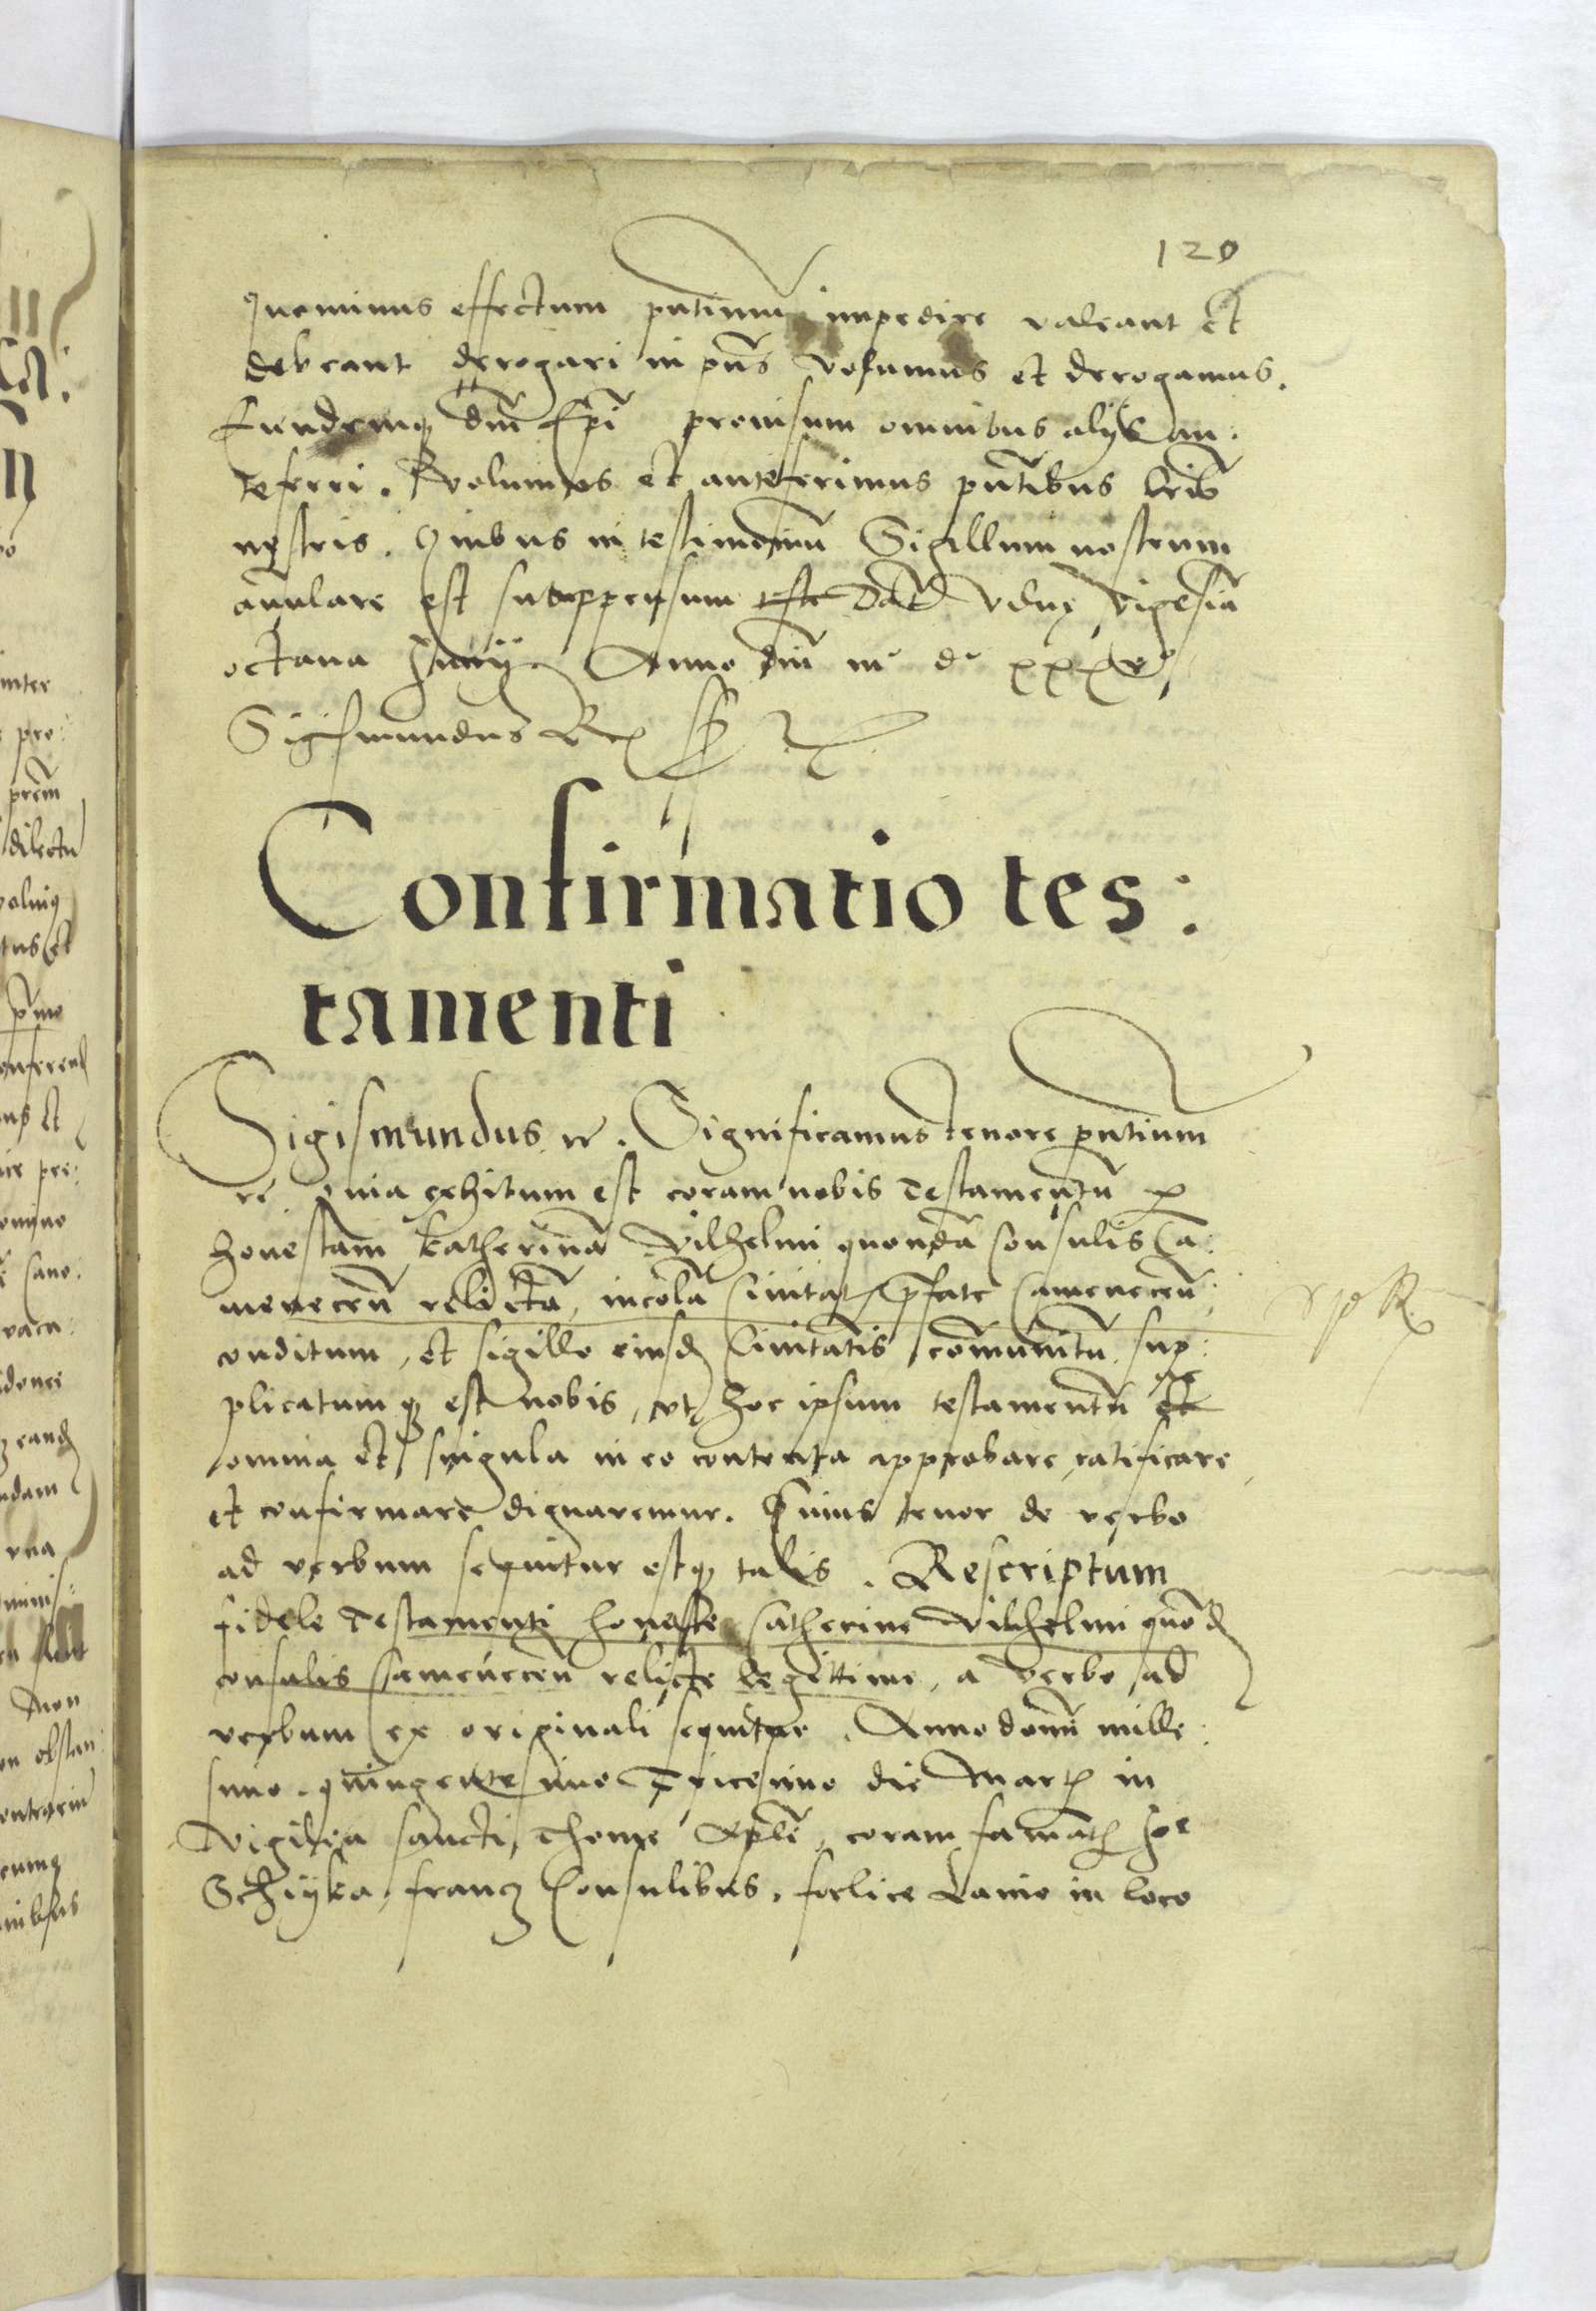 120
quominus effectum pñtium impedire valeant et
debeant derogari in pñs volumus et derogamus.
Eundemq dñi Epi prouisum omnibus alijs an:
teferri. volumus et anteferimus pñtibus lrib
nostris. Quibus in testimoniũ Sigillum nostrum
añulare est subappensum Dat vigesiã
octaua Junij. Anno dñi mº dº xxx
Sigismundus Rex
Confirmatio tes:
tamenti
Sigismundus etc. Significamus tenore pñtium
quia exhibitum est coram nobis Testamentũ p
honestam Katherinã Vilhelmi quondã Consulis Ca:
menecen̄ relictã, incolã Ciuitat pfate Camenecen̄
conditum, et sigillo eiusd Ciuitatis cõmunitũ. sup:
plicatumq est nobis, vt hoc ipsum testamentũ ac
omnia et singula in eo contenta approbare, ratificare
et confirmare dignaremur. Cuius tenor de verbo
ad verbum sequitur estq talis. Rescriptum
fidele Testamenti honeste Catherine Vilhelmi quond
consulis Camenecen̄ relicte legittime, a verbo ad
verbum ex originali sequitur. Anno domĩ mille:
simo. quingentesimo Tricesimo die Martis in
Vigilia sancti, Thome Apli, coram famatis Joe
franc Consulibus. foelice Lanio in loco